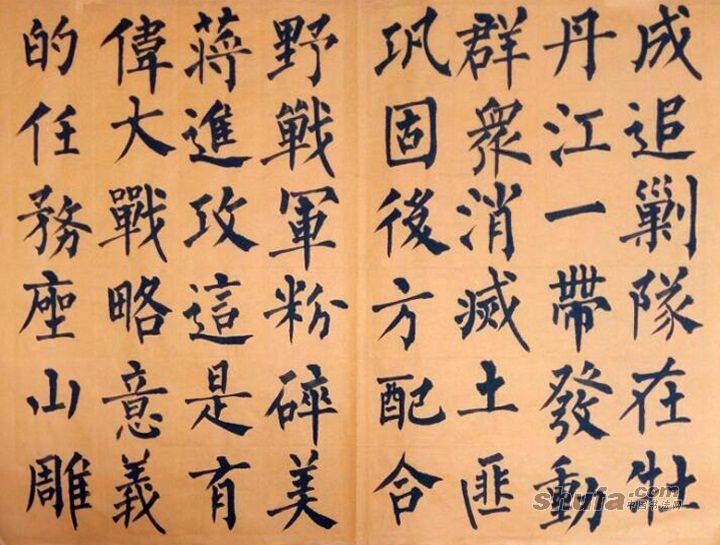 成追剿隊在牡
丹江一帶發動
群衆消滅土匪
巩固後方配合
野戰軍粉碎美
蔣進攻這是有
偉大戰略意義
的任務座山雕
shufa.com
中国书法网